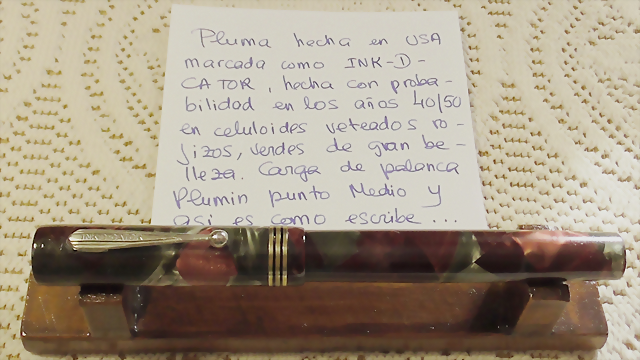 Pluma hecha en USA
marcada como INK-D-
CATOR, hecha con proba-
bilidad en los años 40/50
en celuloides veteados ro-
jizos, verdes de gran be-
lleza. Carga de palanca
Plumin punto Medio y
asi es como escribe ...